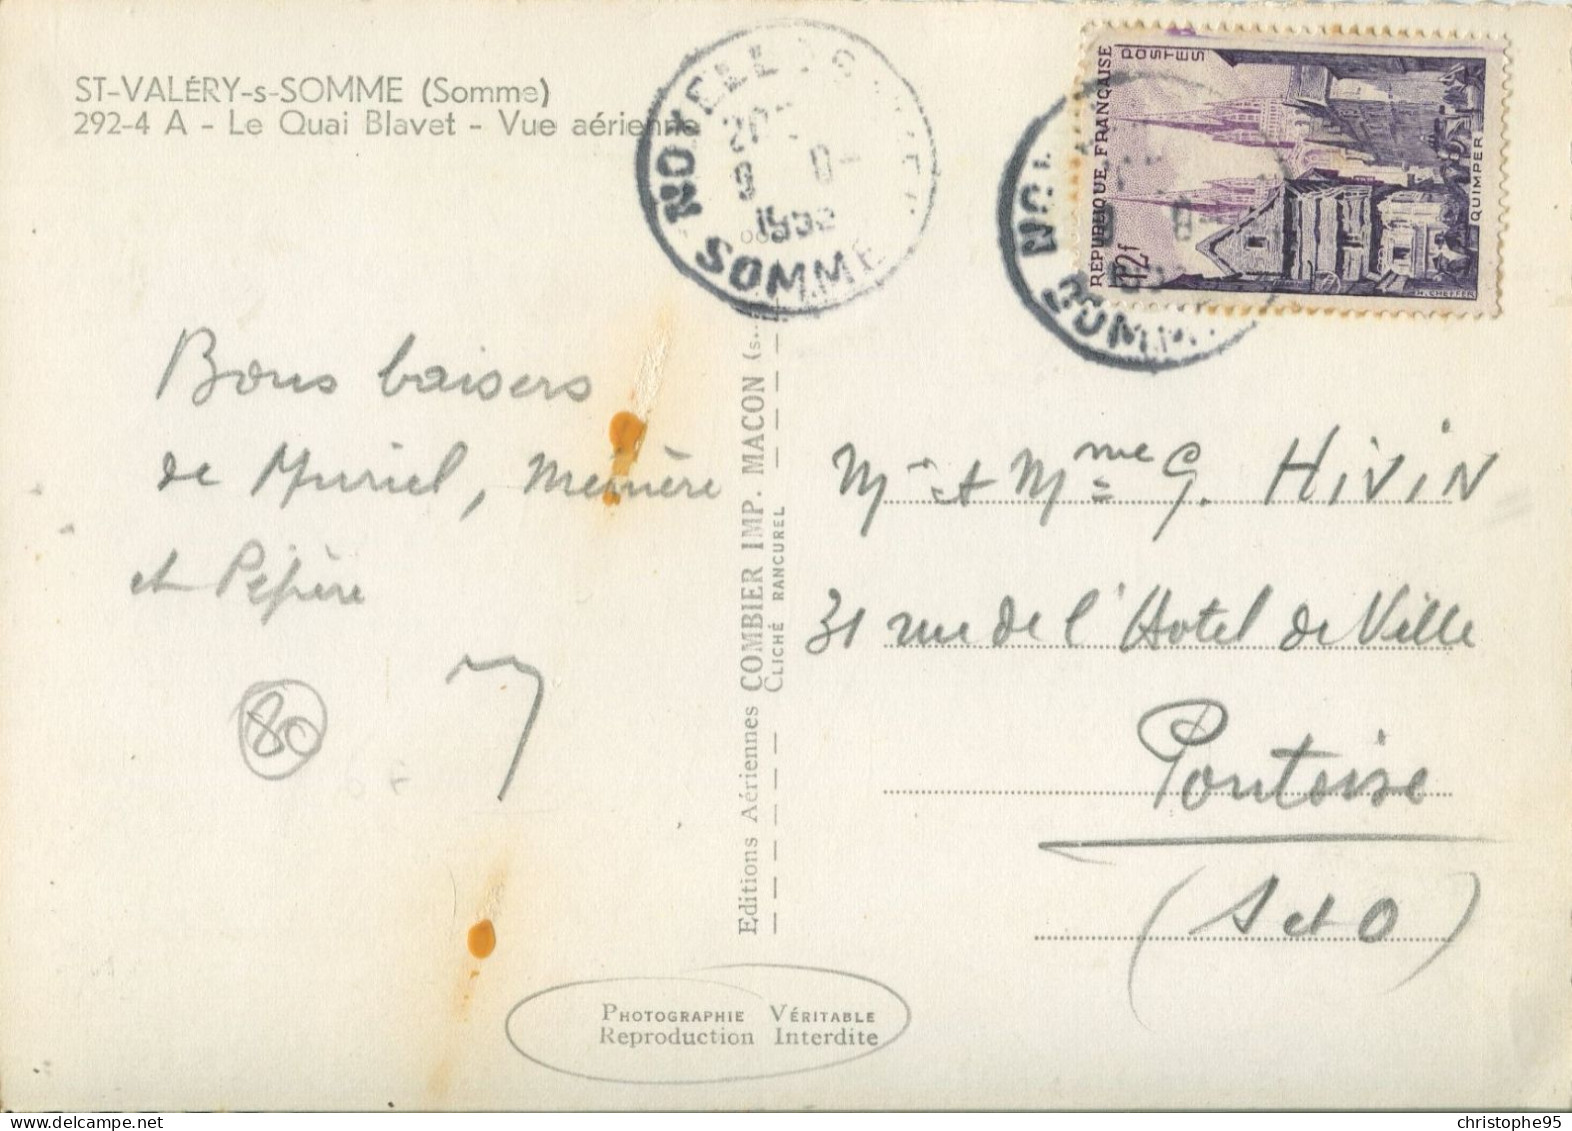 ST-VALÉRY-s-SOMME (Somme)
292-4 A - Le Quai Blavet - Vue aérienne
SOMME
1955
RÉPUBLIQUE FRANÇAISE
POSTES
12f
QUIMPER
H. CHEFFER
Bons baisers
de Muriel, Mémère
et Pépère
80
Mr et Mme G. HIVIN
31 rue de l'Hotel de Ville
Pontoise
(S et O)
Editions Aériennes COMBIER IMP. MACON (s.-
CLICHÉ RANCUREL
PHOTOGRAPHIE VÉRITABLE
Reproduction Interdite
christophe95